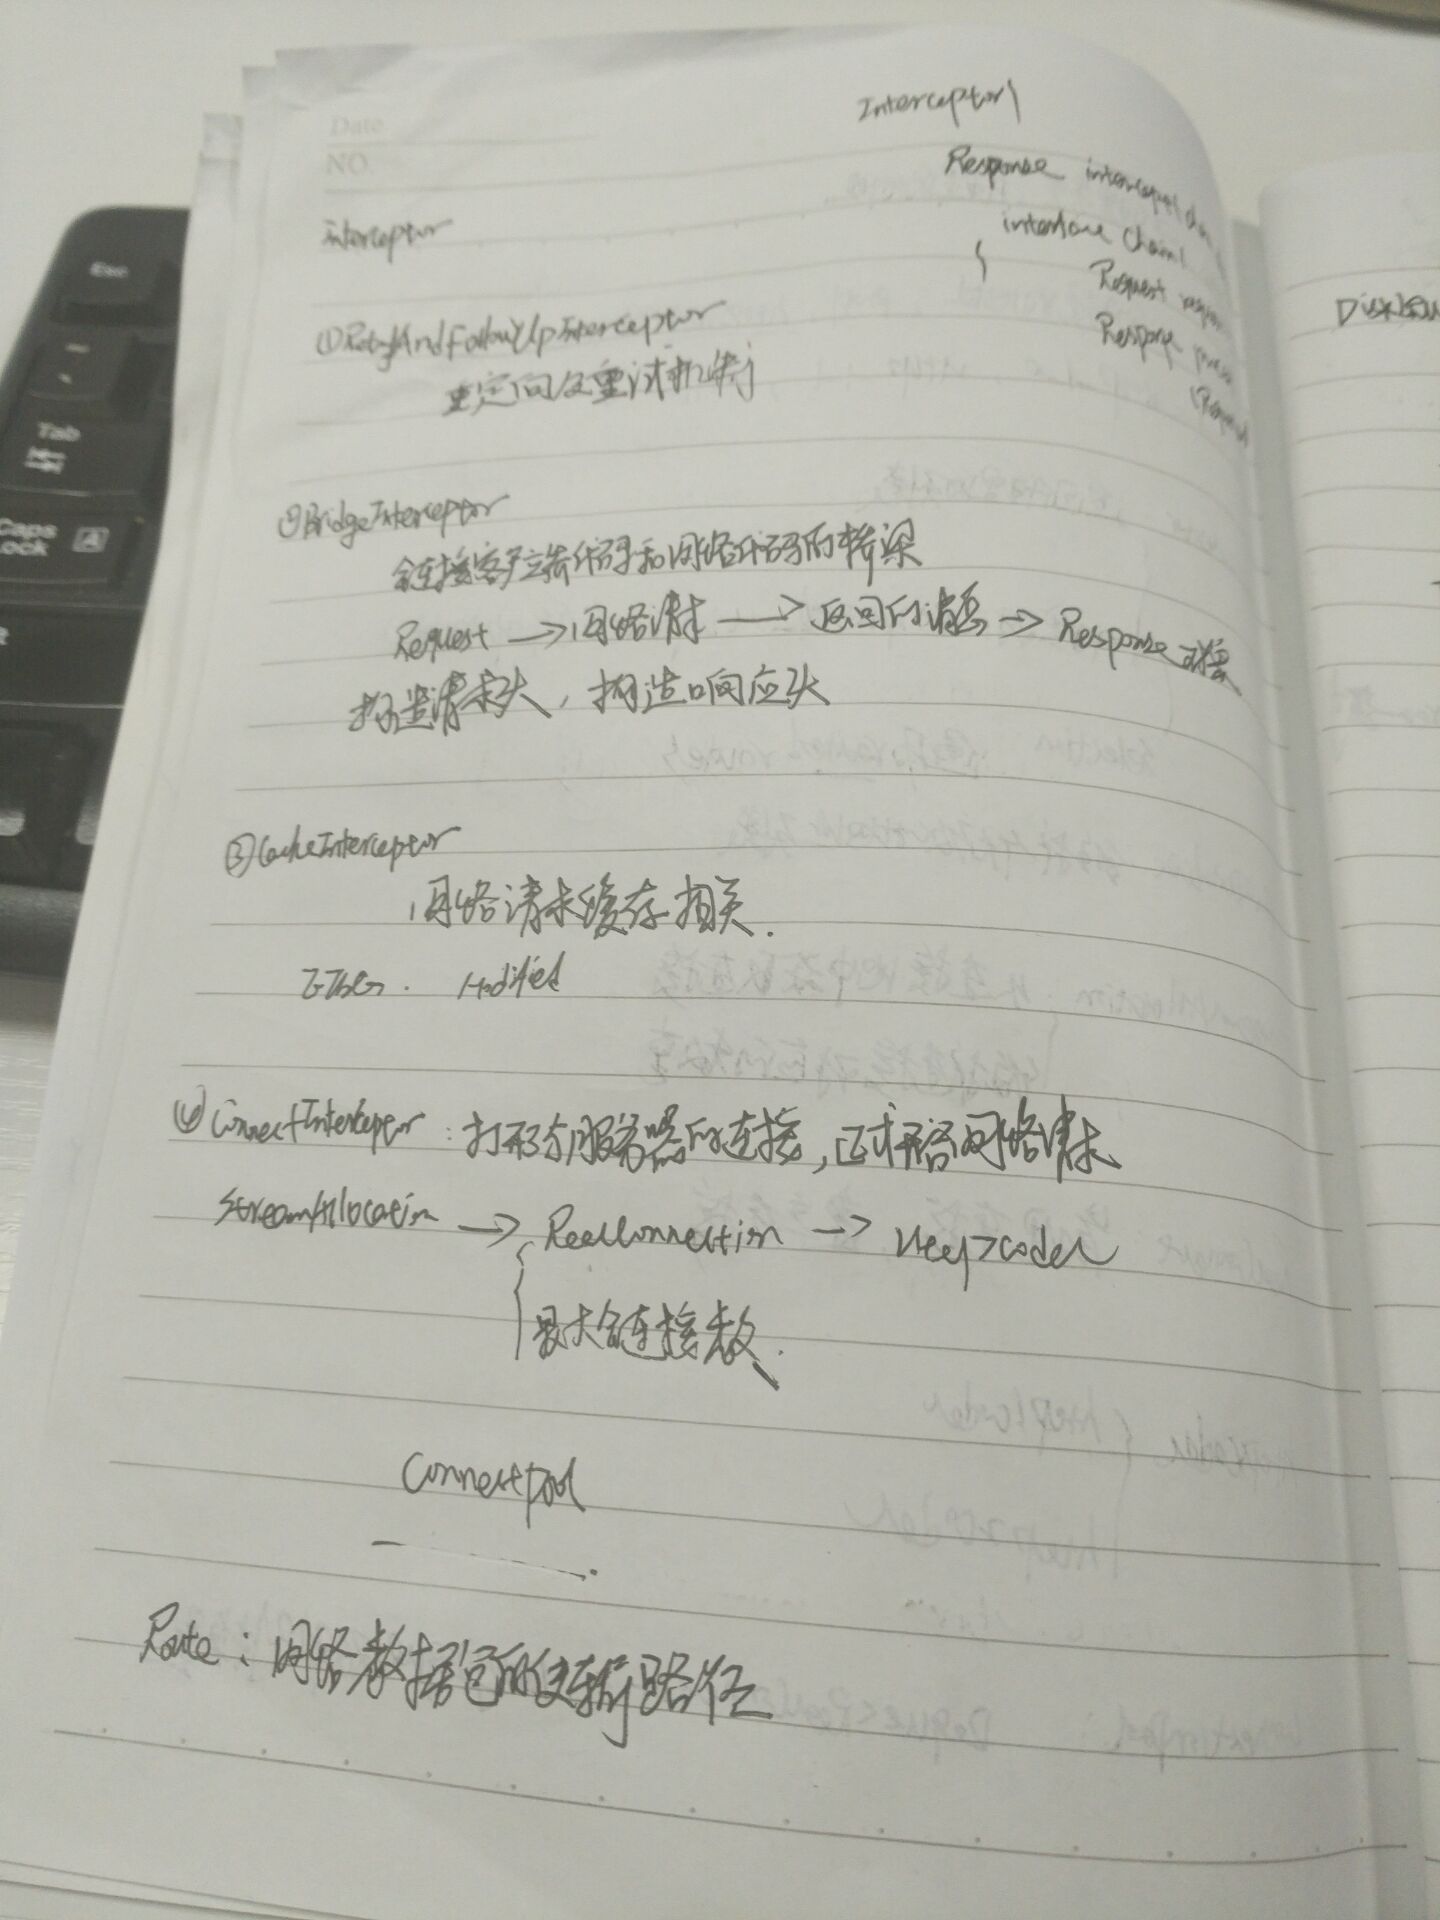 Date
NO.
Interceptor {
Response intercept
interface Chain {
Request
Response
interceptor
①RetryAndFollowUpInterceptor
重定向及重试机制
②BridgeInterceptor
连接客户端代码和网络代码的桥梁
Request → 网络请求 → 返回的消息 → Response对象
构造请求头，构造响应头
③CacheInterceptor
网络请求缓存相关.
ETag. Modified
④ConnectInterceptor：打开与服务器的连接，正式开启网络请求
StreamAllocation → RealConnection →
最大连接数.
Connectpool
Route：网络数据包的传输路径
Esc
Tab
Caps Lock A